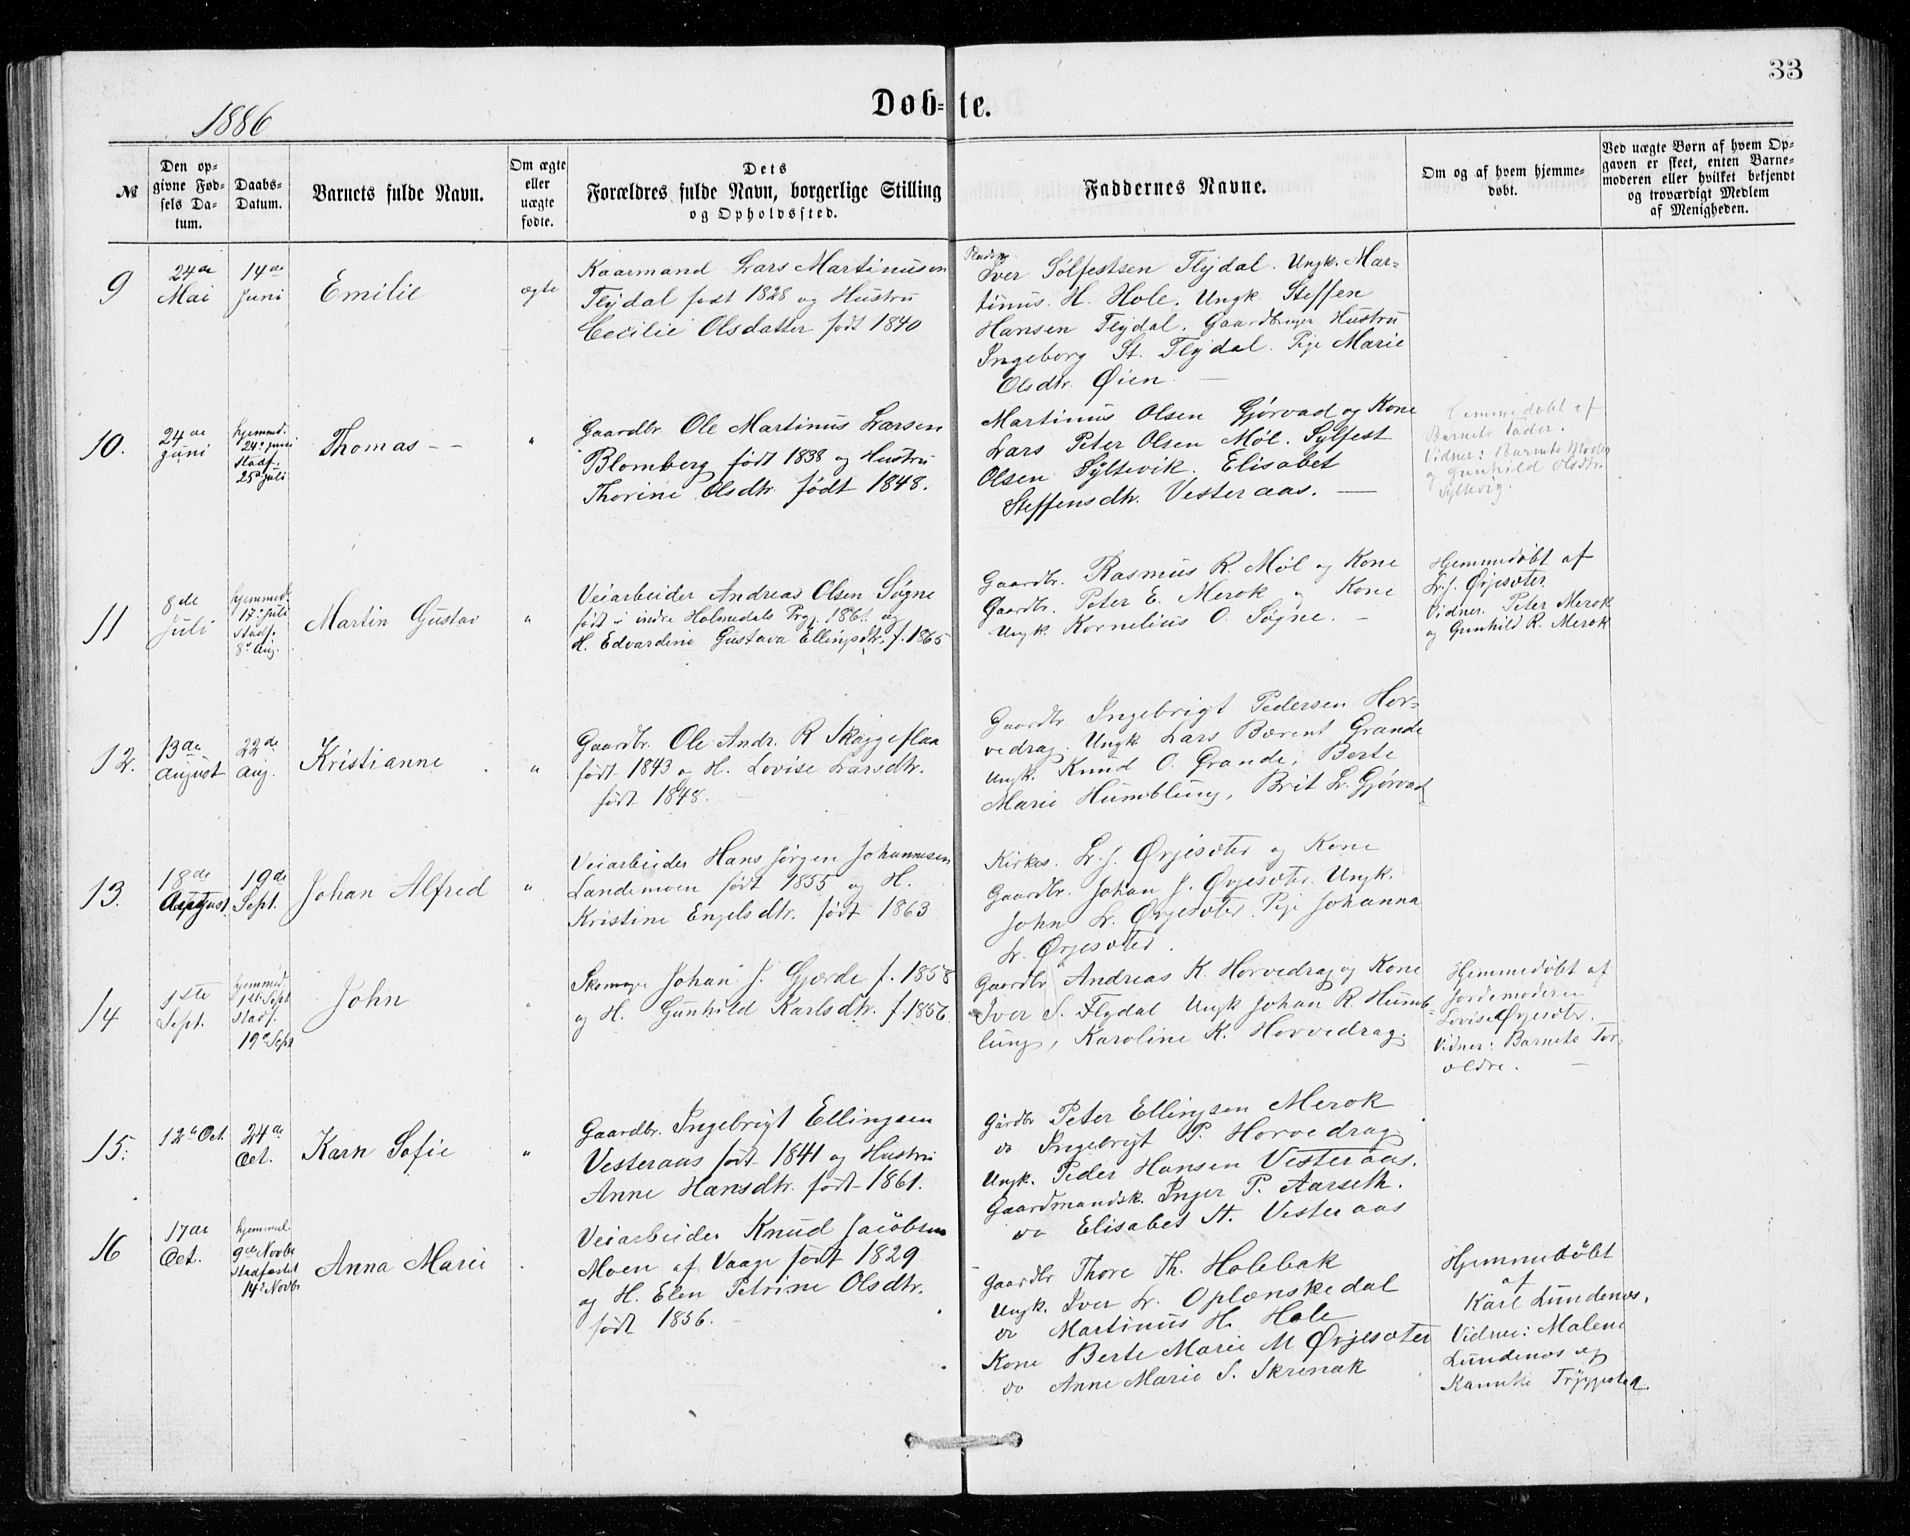 33
1886
Døb=te.
№
Den op-
givne Fød-
sels Da-
tum.
Daabs-
Datum.
Barnets fulde Navn.
Om ægte
eller
uægte
fødte.
Dets
Forældres fulde Navn, borgerlige Stilling
og Opholdssted.
Faddernes Navne.
Om og af hvem hjemme-
døbt.
Ved uægte Børn af hvem Op-
gaven er skeet, enten Barne-
moderen eller hvilket bekjendt
og troværdigt Medlem
af Menigheden.
9
24de
Mai
14de
Juni
Emilie
ægte
Kaarmand Lars Martinusen
Flydal født 1828 og Hustru
Cecilie Olsdatter født 1840
Iver Sølfestsen Flydal. Ungk. Mar-
tinus H. Hole. Ungk. Steffen
Hansen Flydal. Gaardbruger Hustru
Ingeborg St. Flydal. Pige Marie
Olsdtr. Øien. —
10.
24de
Juni
hjemmd.
24de Juni
Stadf.
25de Juli
Thomas — —
"
Gaardbr Ole Martinus Larsen
Blomberg født 1838 og Hustru
Thorine Olsdtr. født 1848.
Martinus Olsen Gjørvad og Kone
Lars Peter Olsen Møl. Sylfest
Olsen Syltevik. Elisabet
Steffensdtr. Vesteraas. —
Hjemmedøbt af
Barnets Fader.
Vidner: Barnets Moder
og Gunhild Olsdtr.
Syltevig.
11
8de
Juli
hjemmed.
17de Juli
Stadf.
8de Aug.
Martin Gustav
"
Veiarbeider Andreas Olsen Søgne
født i indre Holmedals Prgj. 1861. og
H. Edvardine Gustava Ellingsdtr. f. 1865
Gaardbr. Rasmus R. Møl og Kone
Gaardbr. Peter E. Merok og Kone
Ungk. Kornelius O. Søgne. —
Hjemmedøbt af
L. J. Ørjesæter
Vidner. Peter Merok
og Gunhild R. Merok
12.
13de
August
22de
Aug.
Kristianne
"
Gaardbr. Ole Andr. R Skaggeflaa
født 1843 og H. Lovise Larsdtr.
født 1848. —
Gaardbr. Ingebrigt Pedersen Hor-
vedrag. Ungk Lars Bærent Grande
Ungk. Knud O. Grande, Berte
Marie Humblung, Brit L. Gjørvad
13.
18de
August
19de
Sept.
Johan Alfred
"
Veiarbeider Hans Jørgen Johannesen
Landemoen født 1855 og H.
Kristine Engelsdtr. født 1863
Kirkes. L. J. Ørjesæter og Kone
Gaardbr. Johan J. Ørjesæter. Ungk.
John L. Ørjesæter. Pige Johanna
L. Ørjesæter.
14
1ste
Sept.
hjemmed.
1ste Sept
Stadf.
19de Sept
John
"
Skomager Johan J. Gjærde f. 1858
og H. Gunhild Karlsdtr. f 1856.
Gaardbr Andreas K. Horvedrag og Kone
Iver S. Flydal Ungk Johan R. Humb-
lung, Karoline K. Horvedrag.
Hjemmedøbt af
Jordemoderen
Lovise Ørjesæter.
Vidner: Barnets For-
ældre. —
15.
12te Oct.
24de
Oct.
Karn Sofie
"
Gaardbr. Ingebrigt Ellingsen
Vesteraas født 1841 og Hustru
Anne Hansdtr. født 1861.
Gårdbr Peter Ellingsen Merok
do Ingebrigt P. Horvedrag
Ungk. Peder Hansen Vesteraas.
Gaardmandsk. Inger P. Aarseth.
do Elisabet St. Vesteraas
16
17de
Oct.
hjemmed
9de Novbr
Stadfæstet
14de Novbr
Anna Marie
Veiarbeider Knud Jacobsen
Moen af Vaage født 1829
og H. Elen Petrine Olsdtr.
født 1856. —
Gaardbr Thore Th. Holebak
Ungk. Iver L. Oplænskedal
do Martinus H. Hole
Kone Berte Marie M Ørjesæter
do Anne Marie S. Skrenak
Hjemmedøbt
af
Karl Lundenæs.
Vidner: Malene
Lundenæs og